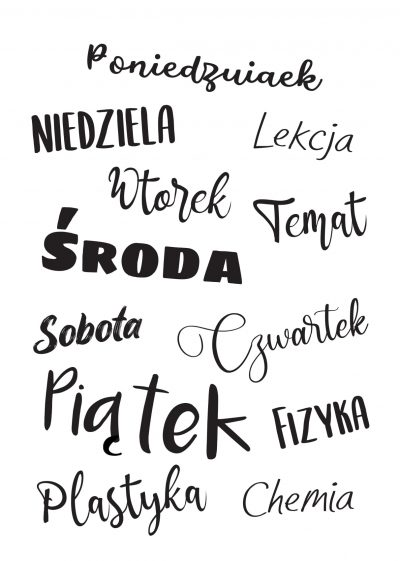 Poniedzuiaek
NIEDZIELA
Lekcja
Wtorek
Temat
ŚRODA
Sobota
Czwartek
Piątek
FIZYKA
Plastyka
Chemia